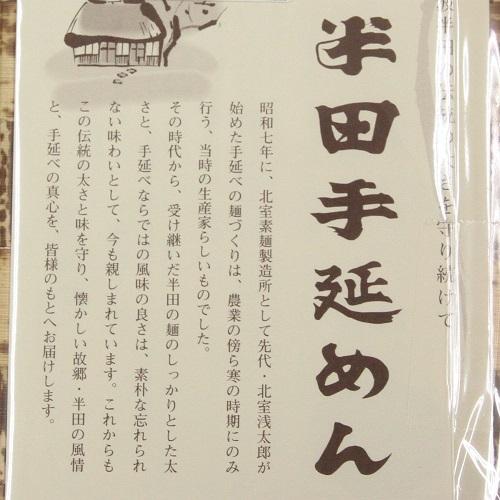 半田の
を守り続けて
半田手延めん
昭和七年に、北室素麺製造所として先代・北室浅太郎が
始めた手延べの麺づくりは、農業の傍ら寒の時期にのみ
行う、当時の生産家らしいものでした。
その時代から、受け継いだ半田の麺のしっかりとした太
さと、手延べならではの風味の良さは、素朴な忘れられ
ない味わいとして、今も親しまれています。これからも
この伝統の太さと味を守り、懐かしい故郷・半田の風情
と、手延べの真心を、皆様のもとへお届けします。